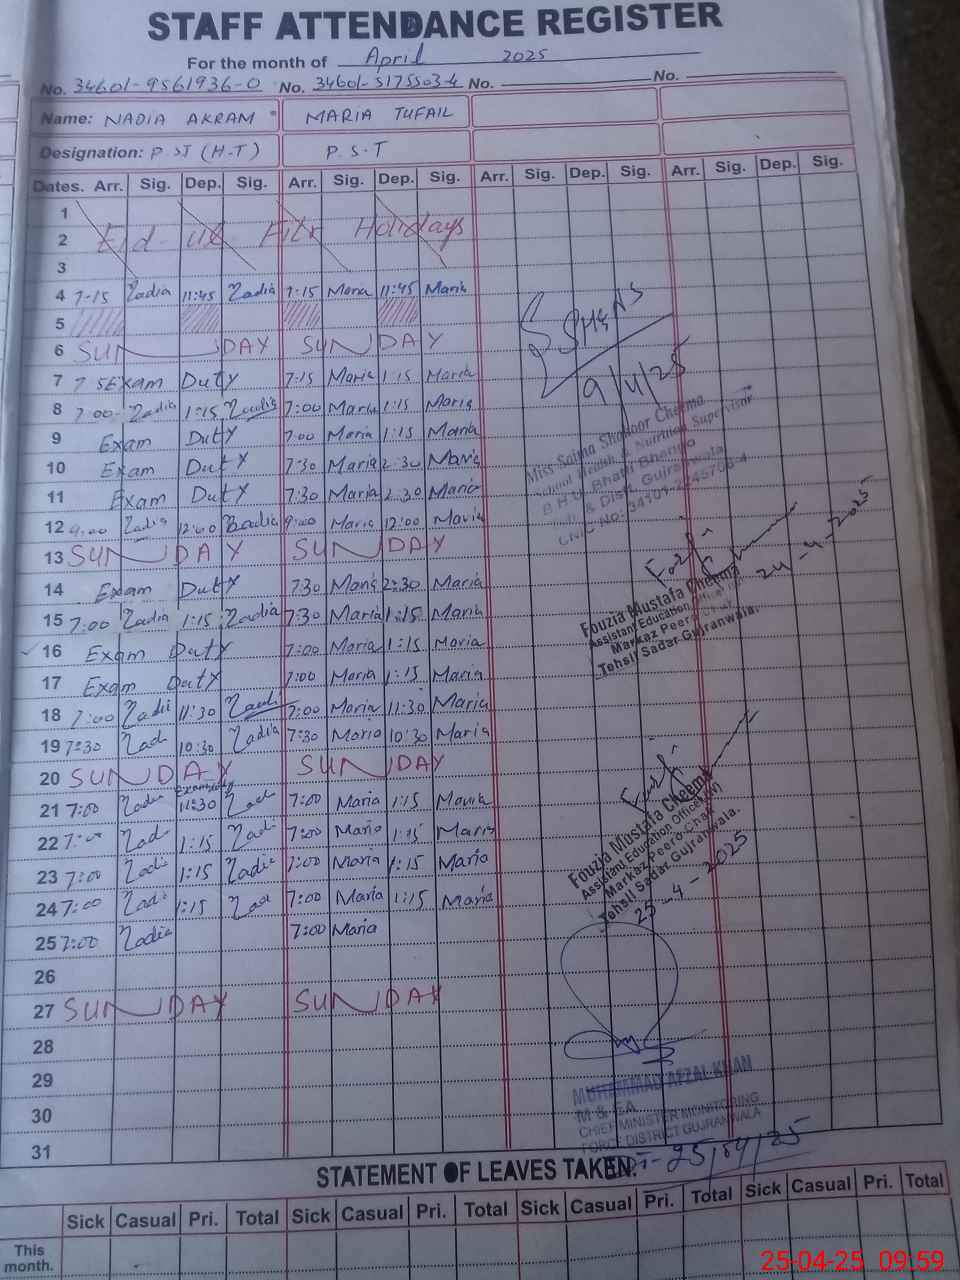 STAFF ATTENDANCE REGISTER
For the month of April 2025
No. 34601-9561936-0 No. 34601-5175503-4 No. No.
Name: NADIA AKRAM MARIA TUFAIL
Designation: P.ST (H-T) P.S.T
Dates. Arr. Sig. Dep. Sig. Arr. Sig. Dep. Sig. Arr. Sig. Dep. Sig. Arr. Sig. Dep. Sig.
1
2 Eid ul Fitr Holidays
3
4 7-15 Nadia 11:45 Nadia 7-15 Maria 11:45 Maria
5
6 SUNDAY SUNDAY
7 Exam Duty 7:15 Maria 1:15 Maria
8 7:00 Nadia 1:15 Nadia 7:00 Maria 1:15 Maria
9 Exam Duty 7:00 Maria 1:15 Maria
10 Exam Duty 7:30 Maria 2:30 Maria
11 Exam Duty 7:30 Maria 2:30 Maria
12 9:00 Nadia 12:00 Nadia 9:00 Maria 12:00 Maria
13 SUNDAY SUNDAY
14 Exam Duty 7:30 Maria 2:30 Maria
15 7:00 Nadia 1:15 Nadia 7:30 Maria 1:15 Maria
16 Exam Duty 7:00 Maria 1:15 Maria
17 Exam Duty 7:00 Maria 1:15 Maria
18 7:00 Nadia 11:30 Nadia 7:00 Maria 11:30 Maria
19 7:30 Nadia 10:30 Nadia 7:30 Maria 10:30 Maria
20 SUNDAY SUNDAY
21 7:00 Nadia 11:30 Nadia 7:00 Maria 1:15 Maria
22 7:00 Nadia 1:15 Nadia 7:00 Maria 1:15 Maria
23 7:00 Nadia 1:15 Nadia 7:00 Maria 1:15 Maria
24 7:00 Nadia 1:15 Nadia 7:00 Maria 1:15 Maria
25 7:00 Nadia 7:00 Maria
26
27 SUNDAY SUNDAY
28
29
30
31
SSH&NS
9/4/25
Miss Saima Shakoor Cheema
School Health & Nutrition Supervisor
B.H.U Bhatti Bhango
Teh & Distt. Gujranwala
CNIC No: 34101-2245706-4
24-4-2025
Fouzia Mustafa Cheema
Assistant Education Officer
Markaz Peero Chak
Tehsil Sadar Gujranwala.
Fouzia Mustafa Cheema
Assistant Education Officer (W)
Markaz Peero Chak
Tehsil Sadar Gujranwala.
25-4-2025
MUHAMMAD AFZAL KHAN
M & EA
CHIEF MINISTER MONITORING
FORCE DISTRICT GUJRANWALA
25/04/25
STATEMENT OF LEAVES TAKEN.
Sick Casual Pri. Total Sick Casual Pri. Total Sick Casual Pri. Total Sick Casual Pri. Total
This
month.
25-04-25 09:59